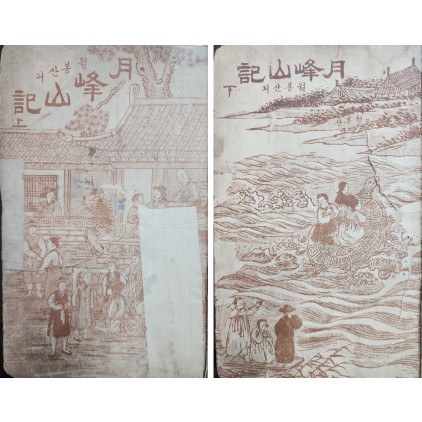 月峰山記
월봉산긔
上
月峰山記
월봉산긔
下